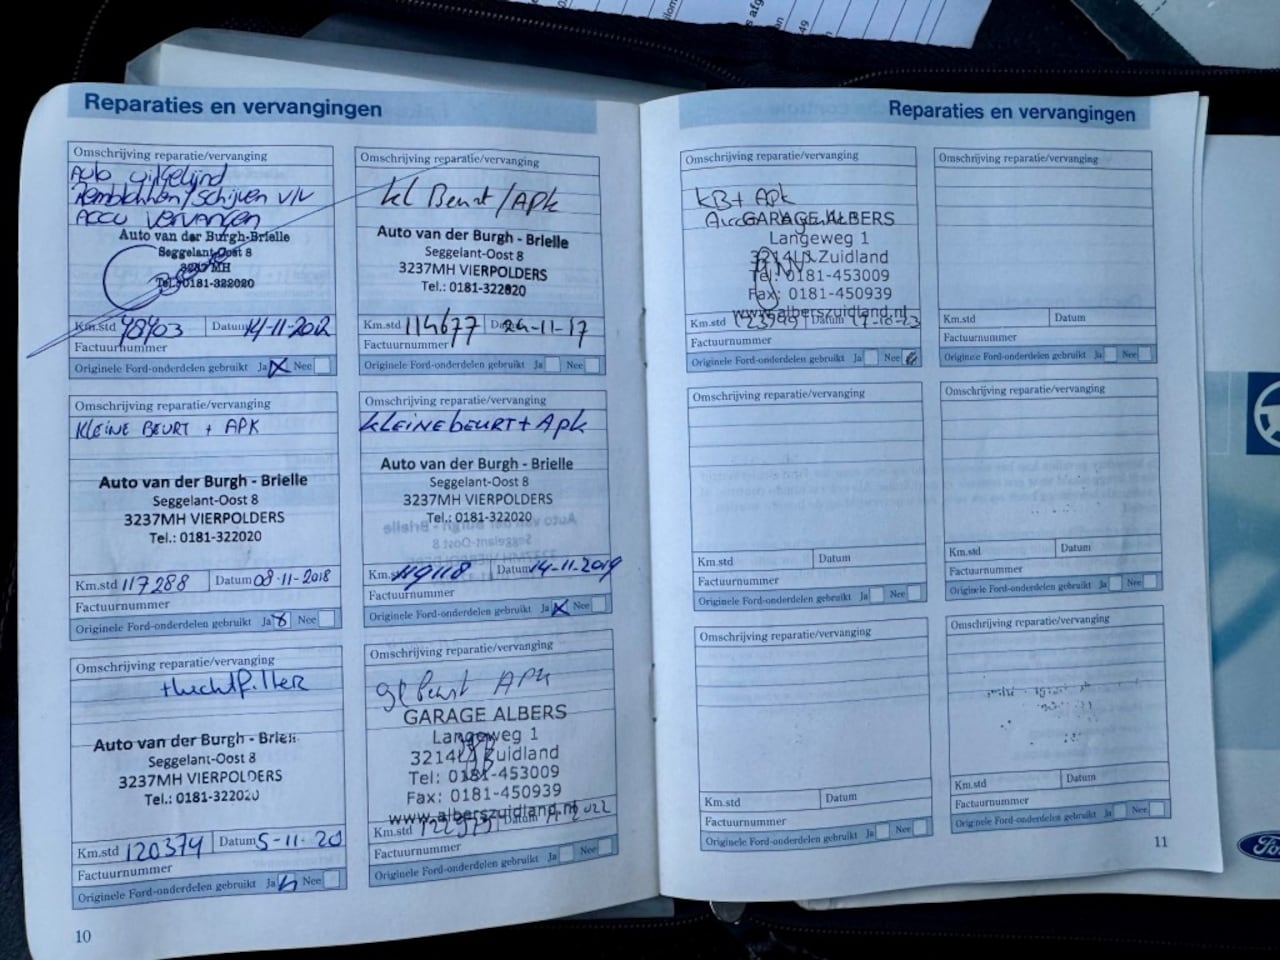 Reparaties en vervangingen
Omschrijving reparatie/vervanging
Auto uitgelijnd
Remblokken/schijven v/v
Accu vervangen
Auto van der Burgh-Brielle
Seggelant-Oost 8
3237 MH
Tel. 0181-322020
Km.std 48403 Datum 14-11-2012
Factuurnummer
Originele Ford-onderdelen gebruikt Ja Nee
Omschrijving reparatie/vervanging
kl Beurt/APK
Auto van der Burgh - Brielle
Seggelant-Oost 8
3237MH VIERPOLDERS
Tel.: 0181-322020
Km.std 114677 Datum 24-11-17
Factuurnummer
Originele Ford-onderdelen gebruikt Ja Nee
Omschrijving reparatie/vervanging
KLEINE BEURT + APK
Auto van der Burgh - Brielle
Seggelant-Oost 8
3237MH VIERPOLDERS
Tel.: 0181-322020
Km.std 117288 Datum 08-11-2018
Factuurnummer
Originele Ford-onderdelen gebruikt Ja Nee
Omschrijving reparatie/vervanging
kleinebeurt + Apk
Auto van der Burgh - Brielle
Seggelant-Oost 8
3237MH VIERPOLDERS
Tel.: 0181-322020
Km.std 119118 Datum 14-11-2019
Factuurnummer
Originele Ford-onderdelen gebruikt Ja Nee
Omschrijving reparatie/vervanging
Auto van der Burgh - Briell
Seggelant-Oost 8
3237MH VIERPOLDERS
Tel.: 0181-322020
Km.std 120374 Datum 5-11-20
Factuurnummer
Originele Ford-onderdelen gebruikt Ja Nee
Omschrijving reparatie/vervanging
gr beurt APK
GARAGE ALBERS
Langeweg 1
3214LJ Zuidland
Tel: 0181-453009
Fax: 0181-450939
www.alberszuidland.nl
Km.std Datum 2022
Factuurnummer
Originele Ford-onderdelen gebruikt Ja Nee
10
Reparaties en vervangingen
Omschrijving reparatie/vervanging
KB + APK
GARAGE ALBERS
Langeweg 1
Zuidland
Tel: 0181-453009
Fax: 0181-450939
www.alberszuidland.nl
Km.std Datum
Factuurnummer
Originele Ford-onderdelen gebruikt Ja Nee
Omschrijving reparatie/vervanging
Km.std Datum
Factuurnummer
Originele Ford-onderdelen gebruikt Ja Nee
Omschrijving reparatie/vervanging
Km.std Datum
Factuurnummer
Originele Ford-onderdelen gebruikt Ja Nee
Omschrijving reparatie/vervanging
Km.std Datum
Factuurnummer
Originele Ford-onderdelen gebruikt Ja Nee
Omschrijving reparatie/vervanging
Km.std Datum
Factuurnummer
Originele Ford-onderdelen gebruikt Ja Nee
Omschrijving reparatie/vervanging
Km.std Datum
Factuurnummer
Originele Ford-onderdelen gebruikt Ja Nee
11